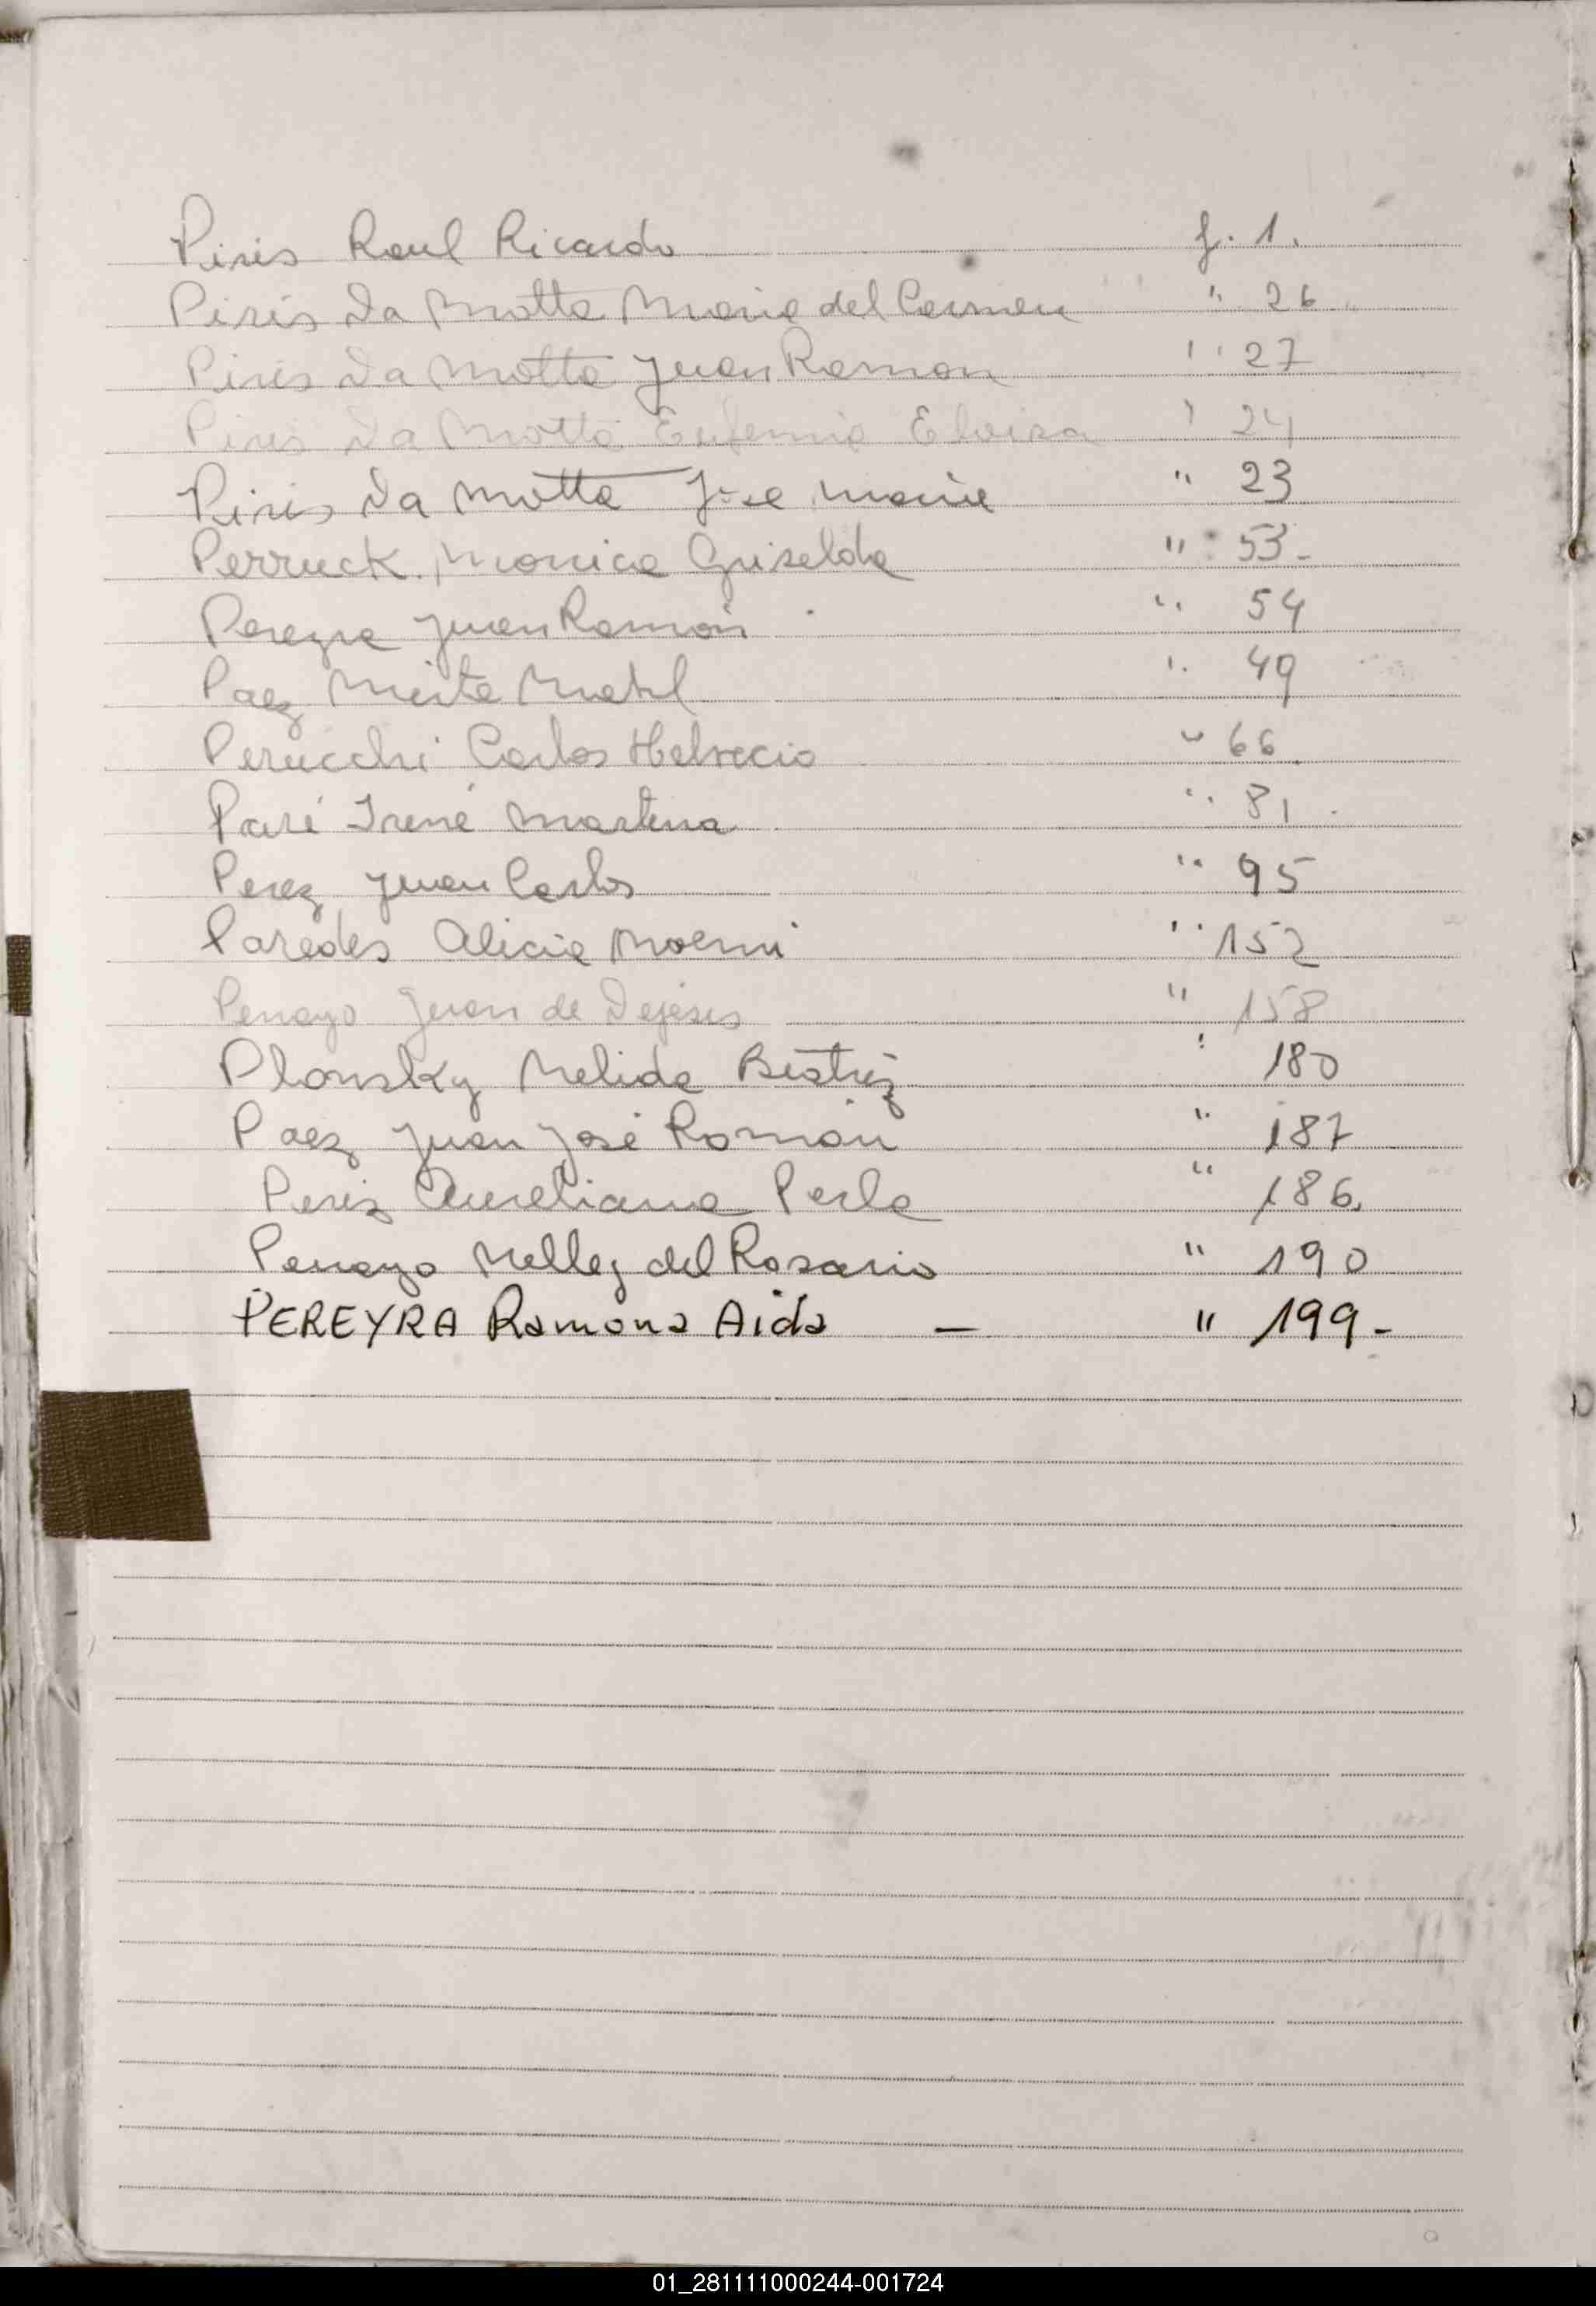 Piris Raul Ricardo f. 1.
Piris Da Motta Maria del Carmen " 26
Piris Da Motta Juan Ramon " 27
Piris Da Motta Eufemia Eloisa " 24
Piris Da Motta Jose Maria " 23
Perruck, Monica Griselda " 53-
Pereyra Juan Ramón " 54
Paez Mirta Mabel " 49
Perucchi Carlos Helvecio " 66
Paré Irene Martina " 81
Perez Juan Carlos " 95
Paredes Alicia Noemi " 152
Penayo Juan de Dejesus " 158
Plonsky Nelida Beatriz " 180
Paez Juan José Román " 187
Periz Aureliana Perla " 186.
Penayo Nelley del Rosario " 190
PEREYRA Ramona Aida — " 199-
01_281111000244-001724